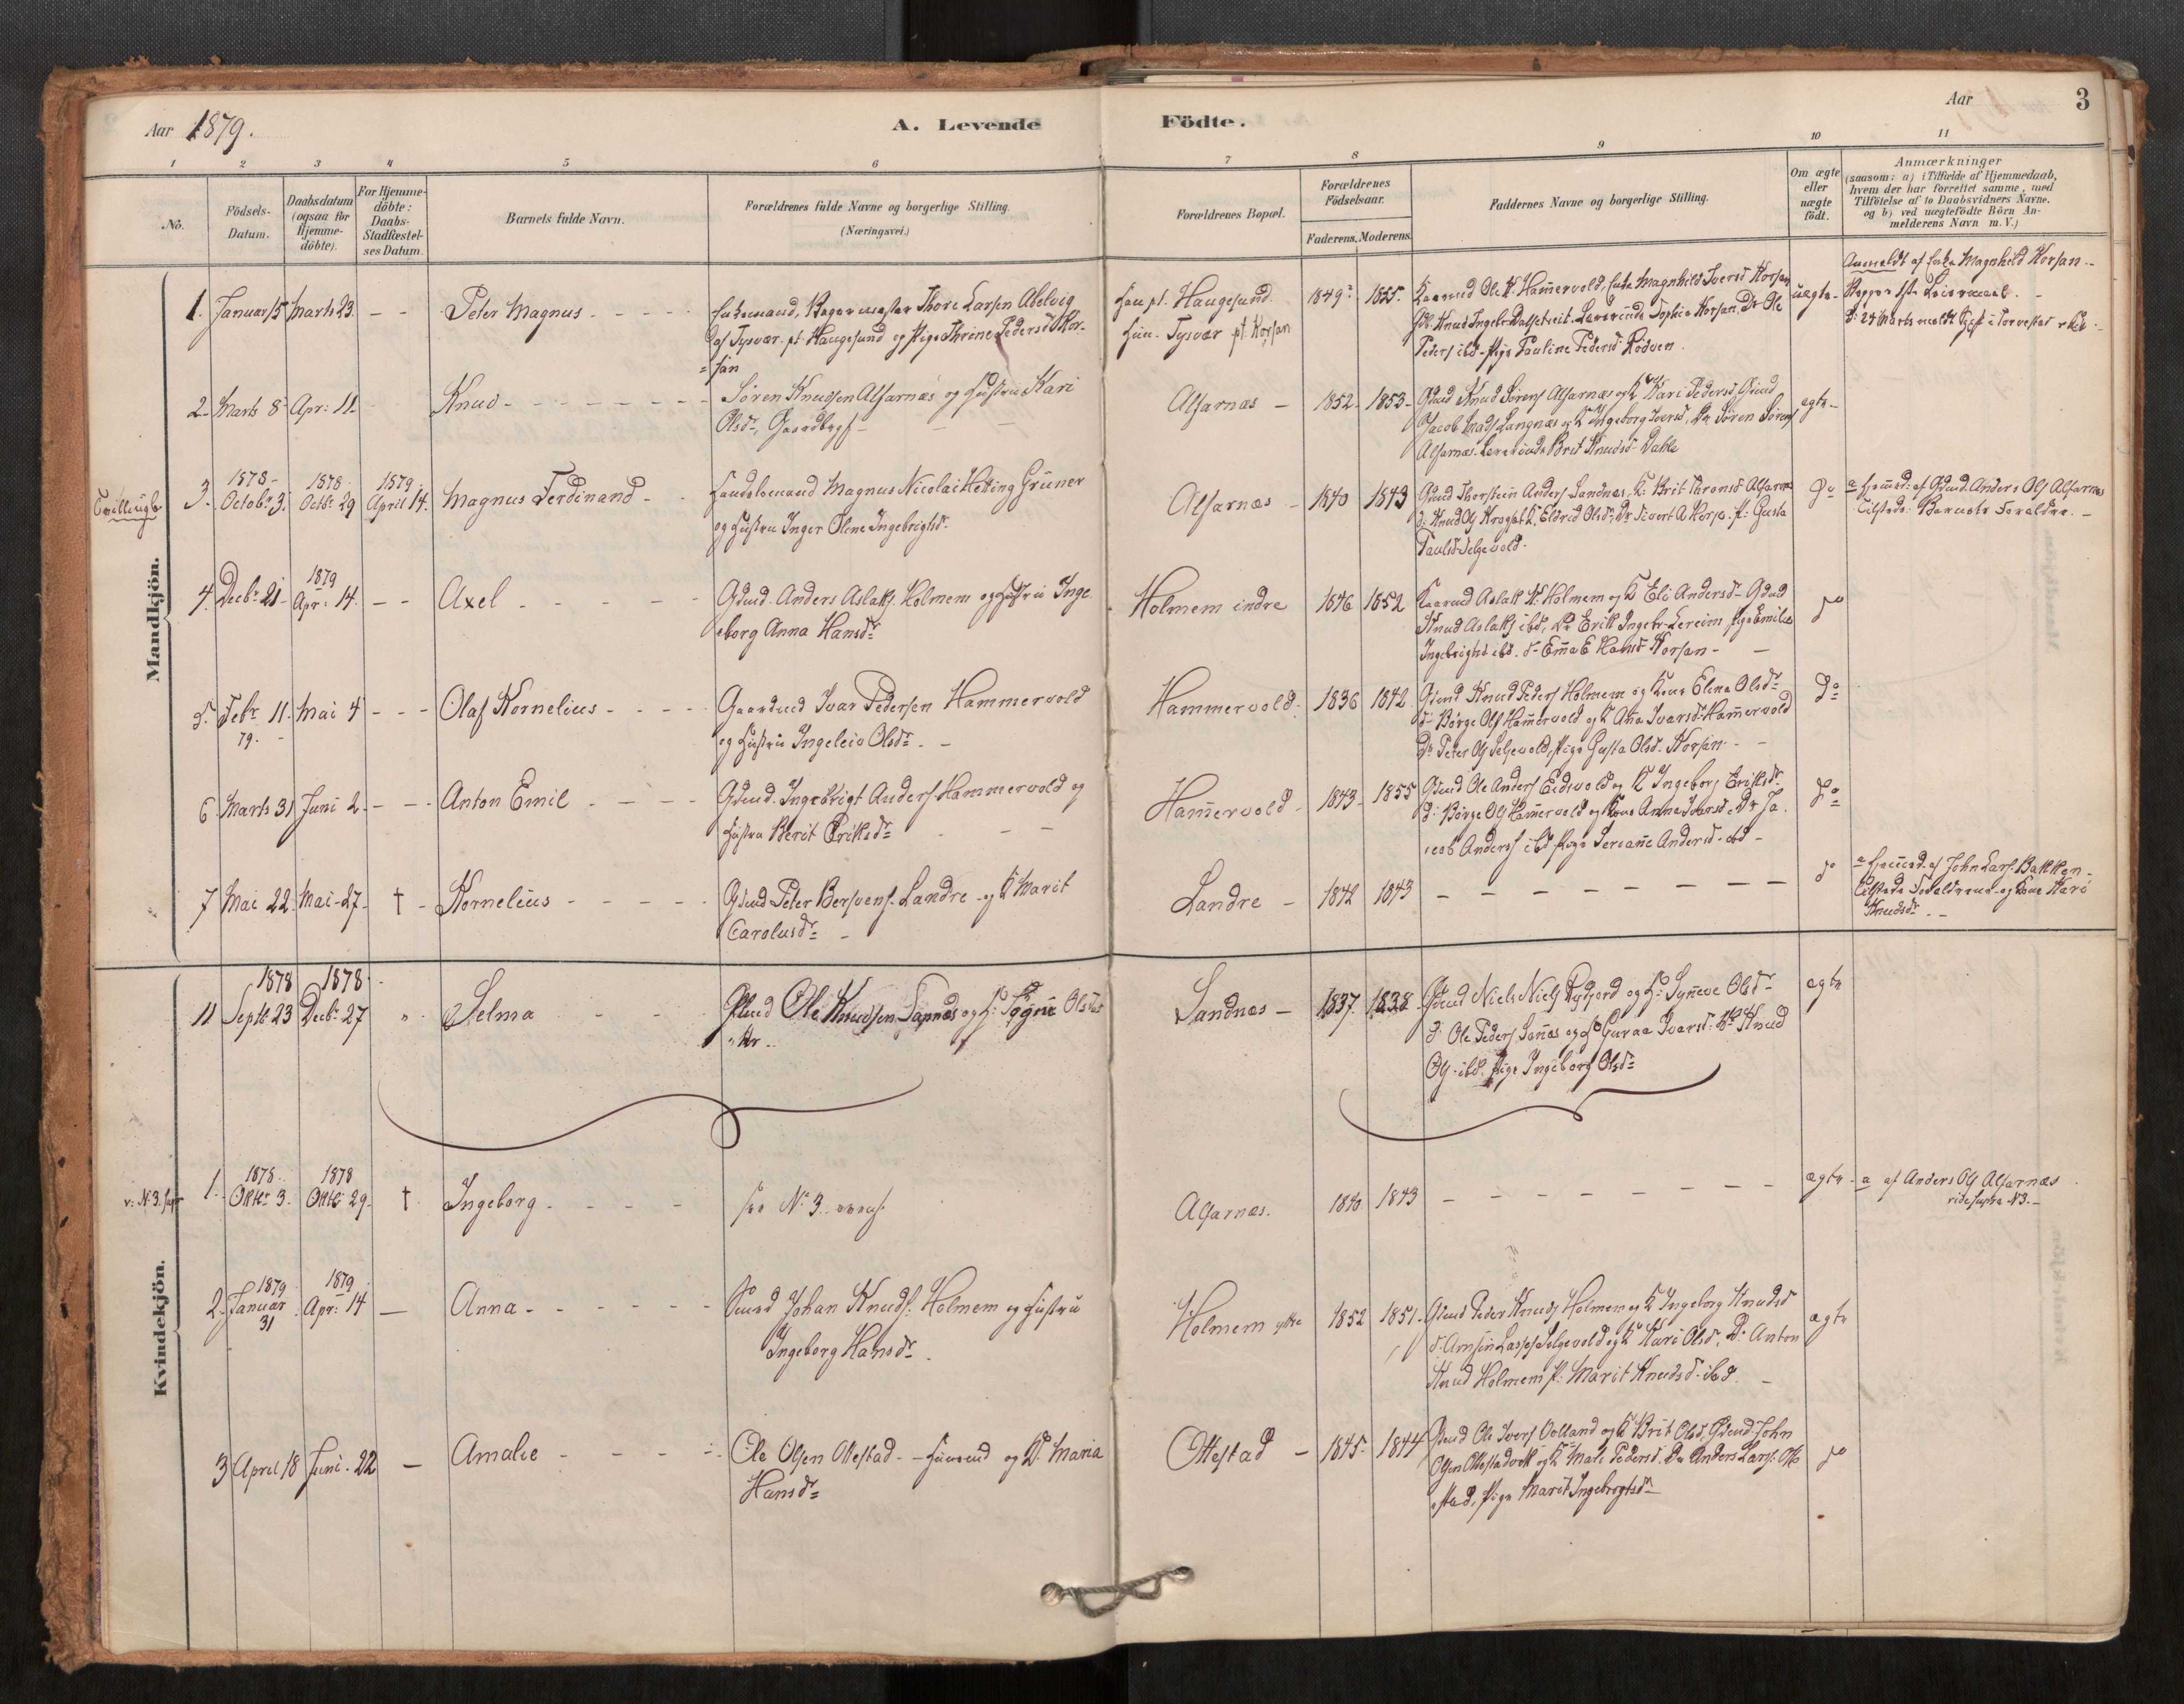 Aar 1879.
A. Levende
Födte.
Aar
3
1 2 3 4 5 6 7 8 9 10 11
No.
Födsels-
Datum.
Daabsdatum
(ogsaa för
Hjemme-
döbte).
For Hjemme-
döbte:
Daabs-
Stadfæstel-
ses Datum.
Barnets fulde Navn.
Forældrenes fulde Navne og borgerlige Stilling.
(Næringsvei.)
Forældrenes Bopæl.
Forældrenes
Födselsaar.
Faderens. Moderens.
Faddernes Navne og borgerlige Stilling.
Om ægte
eller
uægte
födt.
Anmærkninger
(saasom: a) i Tilfælde af Hjemmedaab,
hvem der har forrettet samme, med
Tilföielse af to Daabsvidners Navne.
og b) ved uægtefödte Börn An-
melderens Navn m. V.)
Mandkjön.
1. Januar 15 Marts 23. - - Peter Magnus - - - -
Enkemand, Thore Larsen Abelvig
af Tysvær. pt. Haugesund og Pige Thrine Pedersd Kor-
=san
Han pt. Haugesund
Hun. Tysvær pt. Korsan
1849 1855.
Gaarmd Ole K. Hammervold, Enke Magnhild Iversd Korsan
Sophie Korsan, Dr Ole
Peders ibd. Pige Pauline Pedersd Rödven.
uægte-
Anmeldt af Enke Magnhild Korsan.-
2. Marts 8 Apr: 11. Knud - - - - - -
Sören Knudsen Alfarnæs og Hustru Kari
Olsdr, Gaardbrgs-
Alfarnæs - 1852. 1853-
Gdmd Knud Sörens Alfarnæs og K Kari Pedersd, Gmd
Jacob Mads Langnæs og K Ingeborg Iversd, Dr Sören Sörens
Alfarnæs. Brit Knudsd Dahle
ægte-
Tvillinge
3. 1878- Octobr 3. 1878. Octbr 29 1879. April 14. Magnus Ferdinand -
Handelsmand Magnus Nicolai Heting Grüner
og Hustru Inger Oline Ingebrigtsd.
Alfarnæs - 1840 1843
Gmd Thorstein Anders Sandnæs, K: Brit Thronsd Alfarnæs
K. Eldrid Olsd, Dr Sivert A Korsa. P: Gusta
Paulsd Selgevold.
Do
a Hjemmed: af Gdmd. Anders Ols Alfarnæs
Tilstede: Barnets Forældre. -
4. Decbr 21 1879 Apr: 14. - - Axel - - - -
Gdmd. Anders Aslaks. Holmem og Hustru Inge
eborg Anna Hansdr
Holmem indre 1846 1852
Kaarmd Aslak K. Holmem og K Eli Andersd- Gdmd
Knud Aslaks ibd, Dr Erik Ingebr. Lereim Pige Emilie
Ingebrigtsd ibd. d- Emma E Hansd Korsan- -
Do
5. Febr 11. 79. Mai 4 - - - Olaf Kornelius - - - -
Gaardmd Ivar Pedersen Hammervold
og Hustru Ingeleiv Olsdr. -
Hammervold. 1836 1842.
Gdmd Knud Peders Holmem og Kone Elena Olsdr
d- Börge Ols Hammervold og K Ana Ivarsd Hammervold
Dr Peter Ols Selgevold, Pige Gusta Olsd. Korsan - -
Do
6. Marts 31 Juni 2. - - - Anton Emil - - - -
Gdmd. Ingebrigt Anders Hammervold og
Hustru Berit Eriksdr
Hammervold - 1843- 1855
Gdmd Ole Anders Eidsvold og K Ingeborg Eriksdr
d: Börge Ols Hammervold og Kone Anna Ivarsd, Dr Ja.
cob Anders ibd Pige Seriane Andersd. ibd -
Do
7 Mai 22. Mai-27. † - Kornelius - - - - -
Gdmd Peter Bersvens. Landre - og K Marit
Carolusdr -
Landre - 1842 1843 - - - - - - - -
Do
a Hjemmed. af John Lars. Bakken.
Tilstede Forældrene og Kone Kari
Knudsdr. -
11 1878 Septbr 23 1878. Decbr 27 " Selma - - -
Gdmd Ole Knudsen Sannæs og H: Signe Olsdat
Sandnæs - 1837. 1838.
Gdmd Niels Niels Rydjord og H: Synneve Olsdr
d: Ole Peders Sannæs og H Guroe Ivarsd. Knud
Ols. ibd. Pige Ingeborg Olsdr
ægte
Kvindekjön.
v. N. 3. supr
1. 1878. Oktbr 3. 1878 Oktbr 29. † Ingeborg. - - - -
see No 3. ovenf.
Alfarnæs. 1840 1843 - - - - - - - -
ægte - a af Anders Ols Alfarnæs
vide supra N3.-
2. 1879 Januar 31 1879. Apr: 14 - Anna - - - - -
Johan Knuds. Holmem og Hustru
Ingeborg Hansdr.
Holmem ytre 1852 1851.
Gdmd Peder Knuds Holmem og K Ingeborg Knudsd
Selgevold og K Kari Olsd, Dr Anton
Knud Holmem P. Marit Knudsd. ibd. -
ægte
3 April 18 Juni. 22 - Amalie - - - -
Ole Olsen Ottestad - - og K. Maria
Hansdr
Ottestad - 1845. 1844
Gdmd Ole Ivers Voldand og K Brit Olsd, Gdmd John
Olsen Ottestadvik og K Mali Pedersd. Dr Anders Lars. Ott-
estad, Pige Marit Ingebrigtsdr
Do